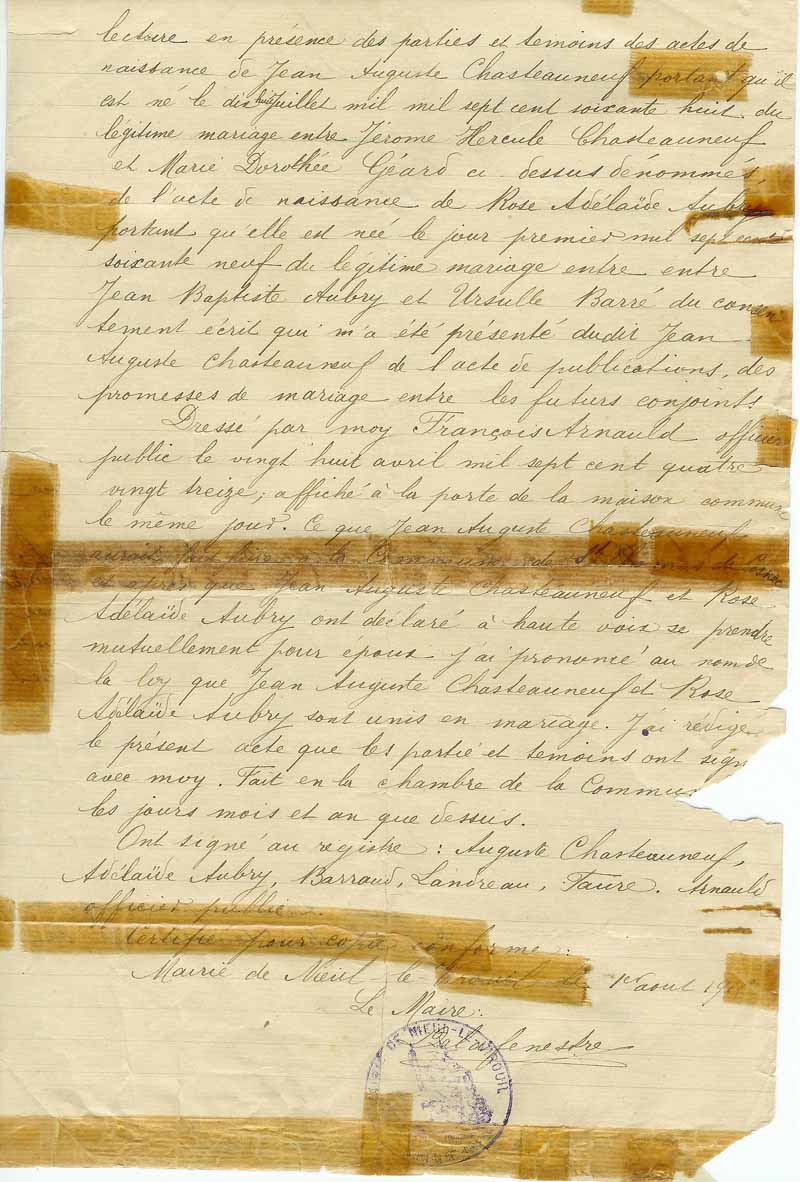 lecture en présence des parties et temoins des actes de
naissance de Jean Auguste Chasteauneuf portant qu'il
est né le dix huit Juillet mil mil sept cent soixante huit du
légitime mariage entre Jérome Hercule Chasteauneuf
et Marie Dorothée Géard ci dessus dénommés,
de l'acte de naissance de Rose Adélaïde Aubry
portant qu'elle est née le jour premier mil sept cent
soixante neuf du légitime mariage entre entre
Jean Baptiste Aubry et Ursulle Barré du consen
tement écrit qui m'a été présenté dudit Jean
Auguste Chasteauneuf de l'acte de publications, des
promesses de mariage entre les futurs conjoints
Dressé par moy François Arnauld officier
public le vingt huit avril mil sept cent quatre
vingt treize, affiché à la porte de la maison commune
le même jour. Ce que Jean Auguste Chasteauneuf
aurait fait faire la Commune de St
et après que Jean Auguste Chasteauneuf et Rose
Adélaïde Aubry ont déclaré à haute voix se prendre
mutuellement pour époux j'ai prononcé au nom de
la loy que Jean Auguste Chasteauneuf et Rose
Adélaïde Aubry sont unis en mariage. J'ai rédigé
le présent acte que les partié et temoins ont sign
avec moy. Fait en la chambre de la Commu
les jours mois et an que dessus.
Ont signé au registre : Auguste Chasteauneuf,
Adélaïde Aubry, Barraud, Landreau, Faure. Arnauld
officier public.
Certifié pour copie conforme :
Mairie de Nieul-le-Virouil le 1er aout
Le Maire :
MAIRIE DE NIEUL-LE-VIROUIL